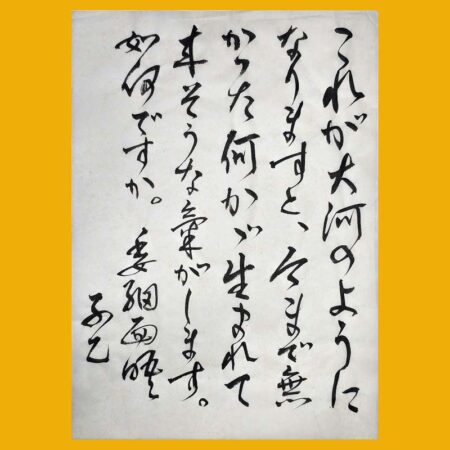 これが大河のように
なりますと、今まで無
かった何かが生まれて
来そうな氣がします。
如何ですか。委細面晤